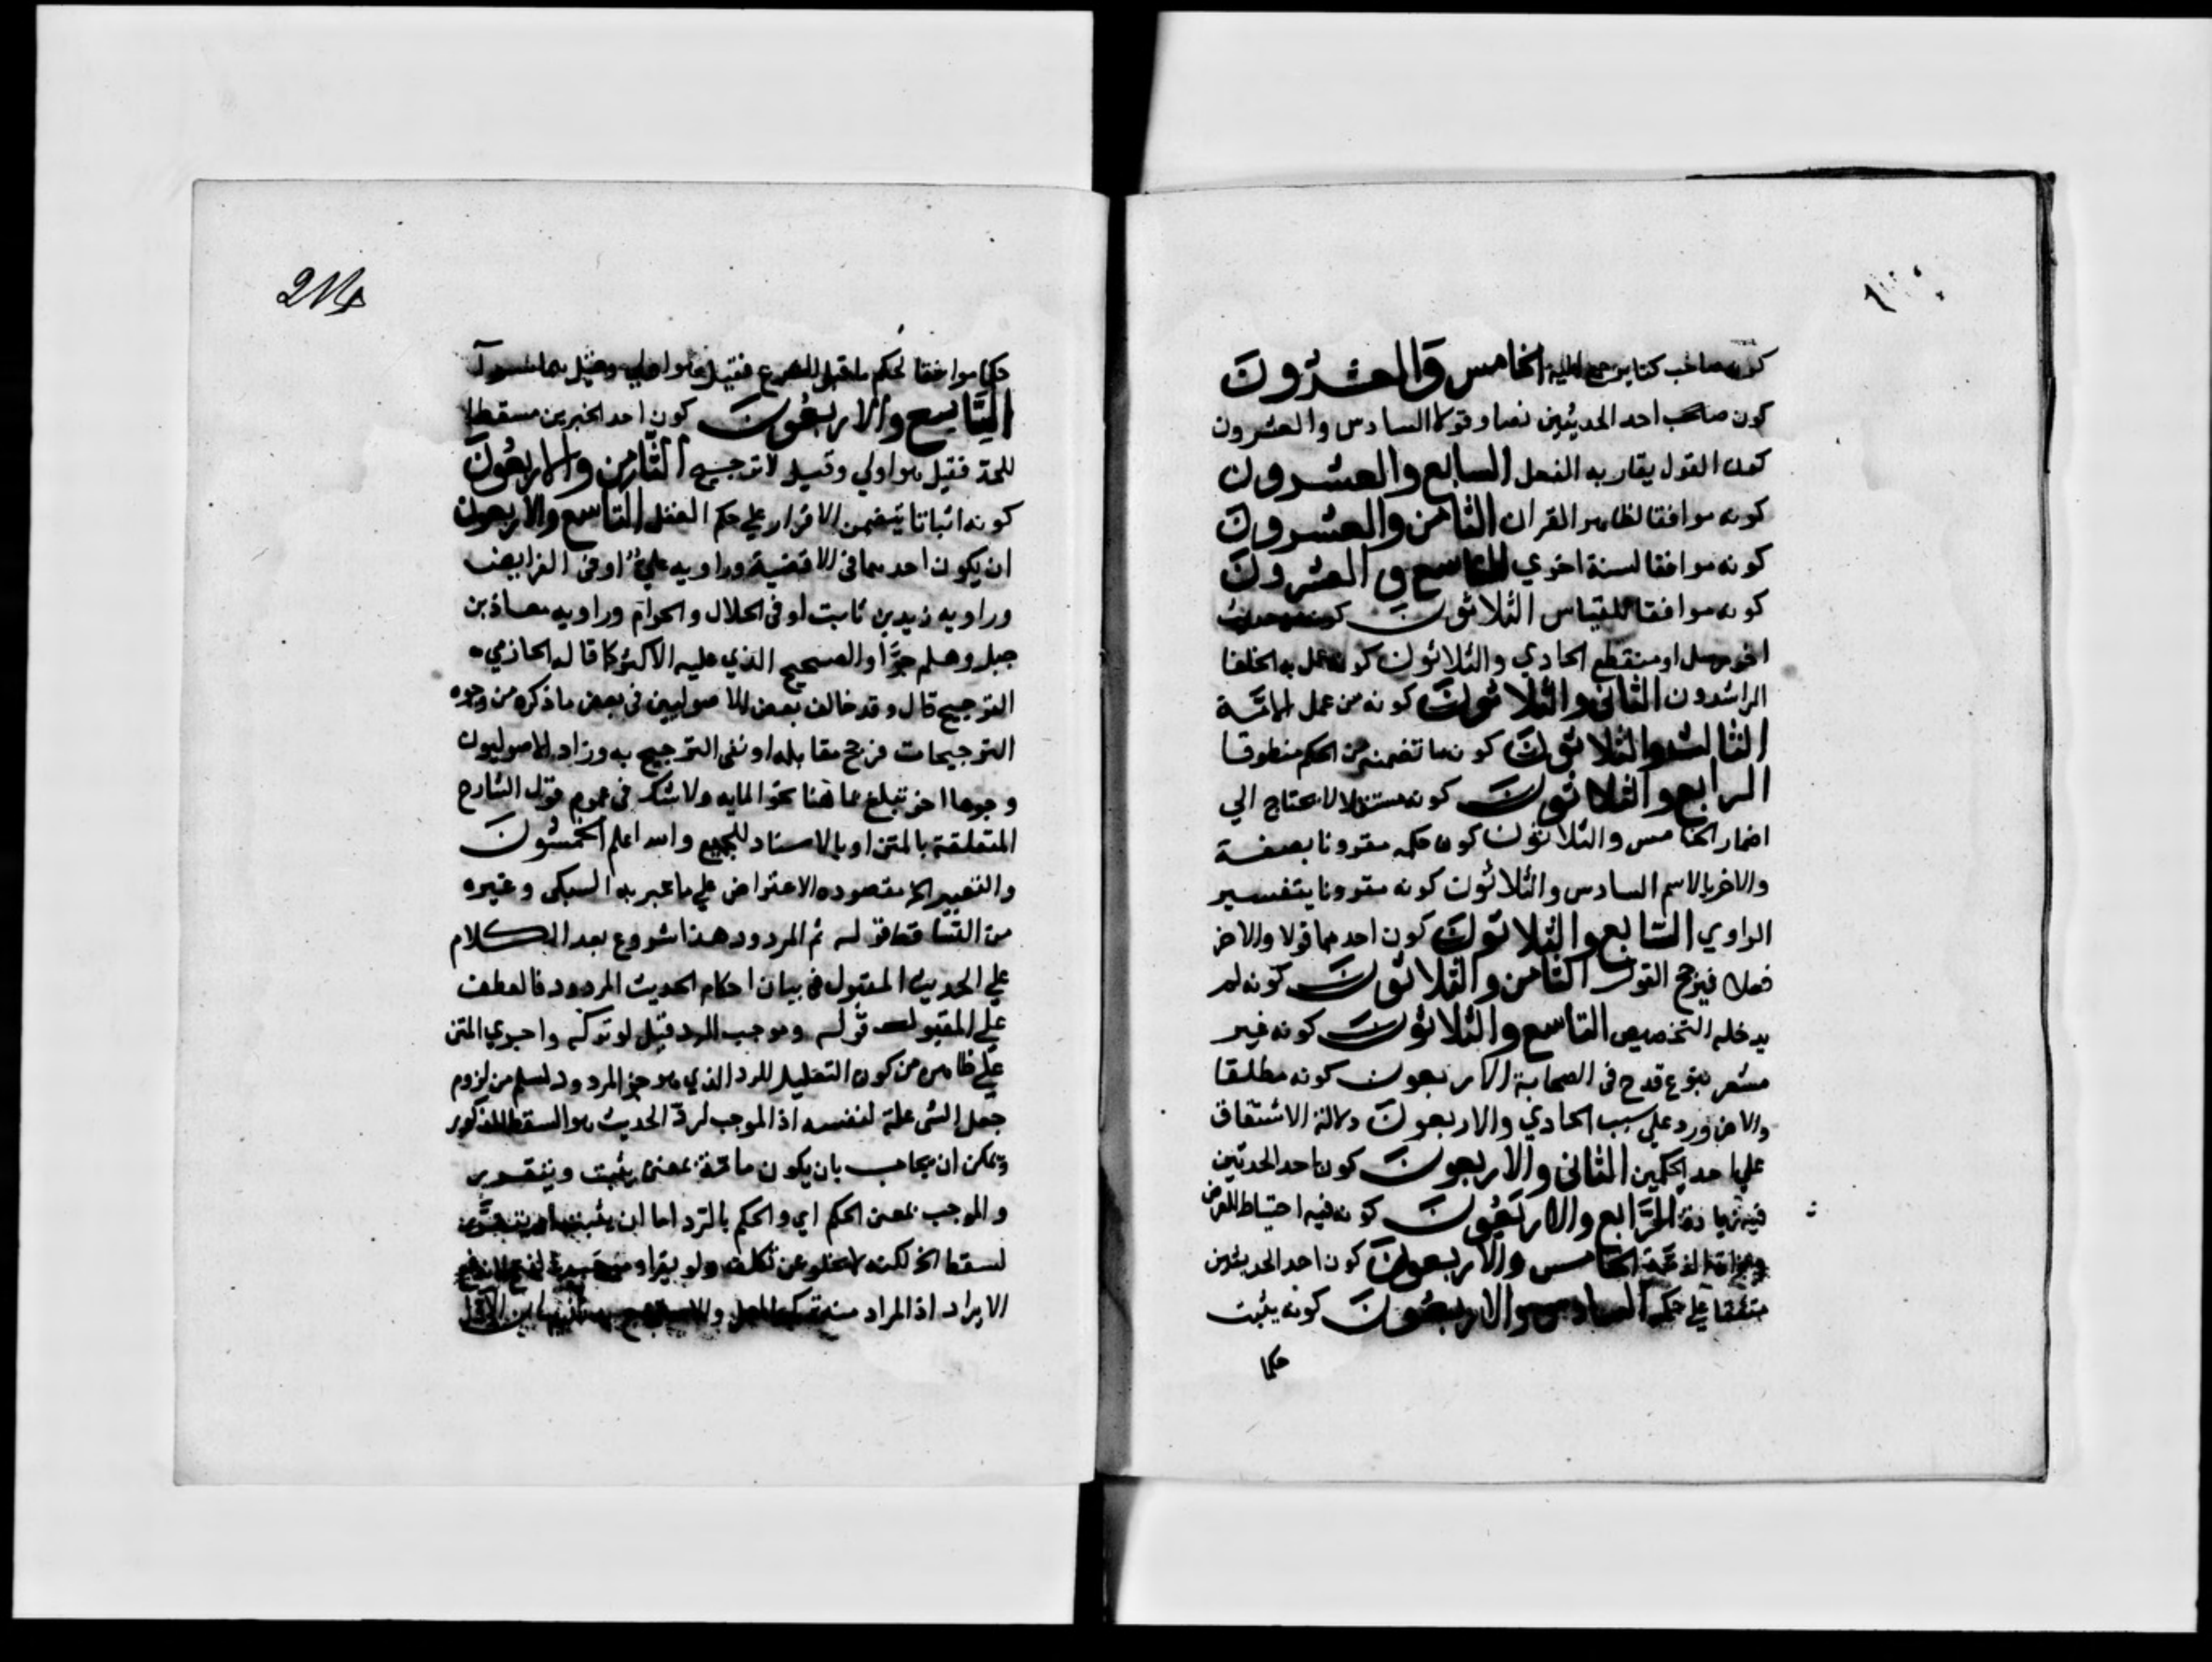 كون صاحب كتاب يرجع اليه الخامس والعشرون
كون صاحب احد الحديثين نصا وقولا السادس والعشرون
كون القول يقاربه الفعل السابع والعشرون
كونه موافقا لظاهر القران الثامن والعشرون
كونه موافقا لسنة اخري التاسع والعشرون
كونه موافقا للقياس الثلاثون كونه معه حديث
اخر مرسل او منقطع الحادي والثلاثون كونه عمل به الخلفا
الراشدون الثاني والثلاثون كونه من عمل الامة
الثالث والثلاثون كون ما تضمنه من الحكم منطوقا
الرابع والثلاثون كونه مستقلا لا يحتاج الي
اضمار الخامس والثلاثون كون حكمه مقرونا بصفة
والاخر بالاسم السادس والثلاثون كونه مقرونا بتفسير
الراوي السابع والثلاثون كون احدهما قولا والاخر
فعلا فيرجح القول الثامن والثلاثون كونه لم
يدخله التخصيص التاسع والثلاثون كونه غير
مشعر بنوع قدح في الصحابة الاربعون كونه مطلقا
والاخر ورد علي سبب الحادي والاربعون دلالة الاشتقاق
علي احد الحكمين الثاني والاربعون كون احد الحديثين
فيه زيادة الرابع والاربعون كونه فيه احتياط للفرض
وبراة الذمة الخامس والاربعون كون احد الحديثين
متفقا علي حكمه السادس والاربعون كونه يثبت
حكما
214
حكما موافقا لحكم ما قبل الشرع فقيل هو اولي وقيل هما سوآ
السابع والاربعون كون احد الخبرين مسقطا
للحد فقيل هو اولي وقيل لا ترجيح الثامن والاربعون
كونه اثباتا يتضمن الاقرار علي حكم العقل التاسع والاربعون
ان يكون احدهما في الاقضية وراويه علي او في الفرايض
وراويه زيد بن ثابت او في الحلال والحرام وراويه معاذ بن
جبل وهلم جرا والصحيح الذي عليه الاكثر كما قاله الحازمي
الترجيح قال وقد خالف بعض الاصوليين في بعض ما ذكره من وجوه
الترجيحات فرجح مقابله او نفي الترجيح به وزاد الاصوليون
وجوها اخر تبلغ مما هنا نحو المايه ولا شك في عموم قول الشارح
المتعلقة بالمتن او بالاسناد للجميع والله اعلم الخمسون
والتعبير الخ مقصوده الاعتراض علي ما عبر به السبكي وغيره
من التساقط قوله ثم المردود هذا شروع بعد الكلام
علي الحديث المقبول في بيان احكام الحديث المردود فالعطف
علي المقبول قوله وموجب الرد قيل لو تركه واجري المتن
علي ظاهره من كون التعليل للرد الذي هو جز المردود لسلم من لزوم
جعل الشي علة لنفسه اذ الموجب لرد الحديث هو السقط المذكور
ويمكن ان يجاب بان يكون بمعني يثبت ويتقرر
والموجب بمعني الحكم اي والحكم بالرد اما ان يثبت
لسقط الخ لكنه لا يخلو عن تكلف ولو يقرا
الايراد اذ المراد منه